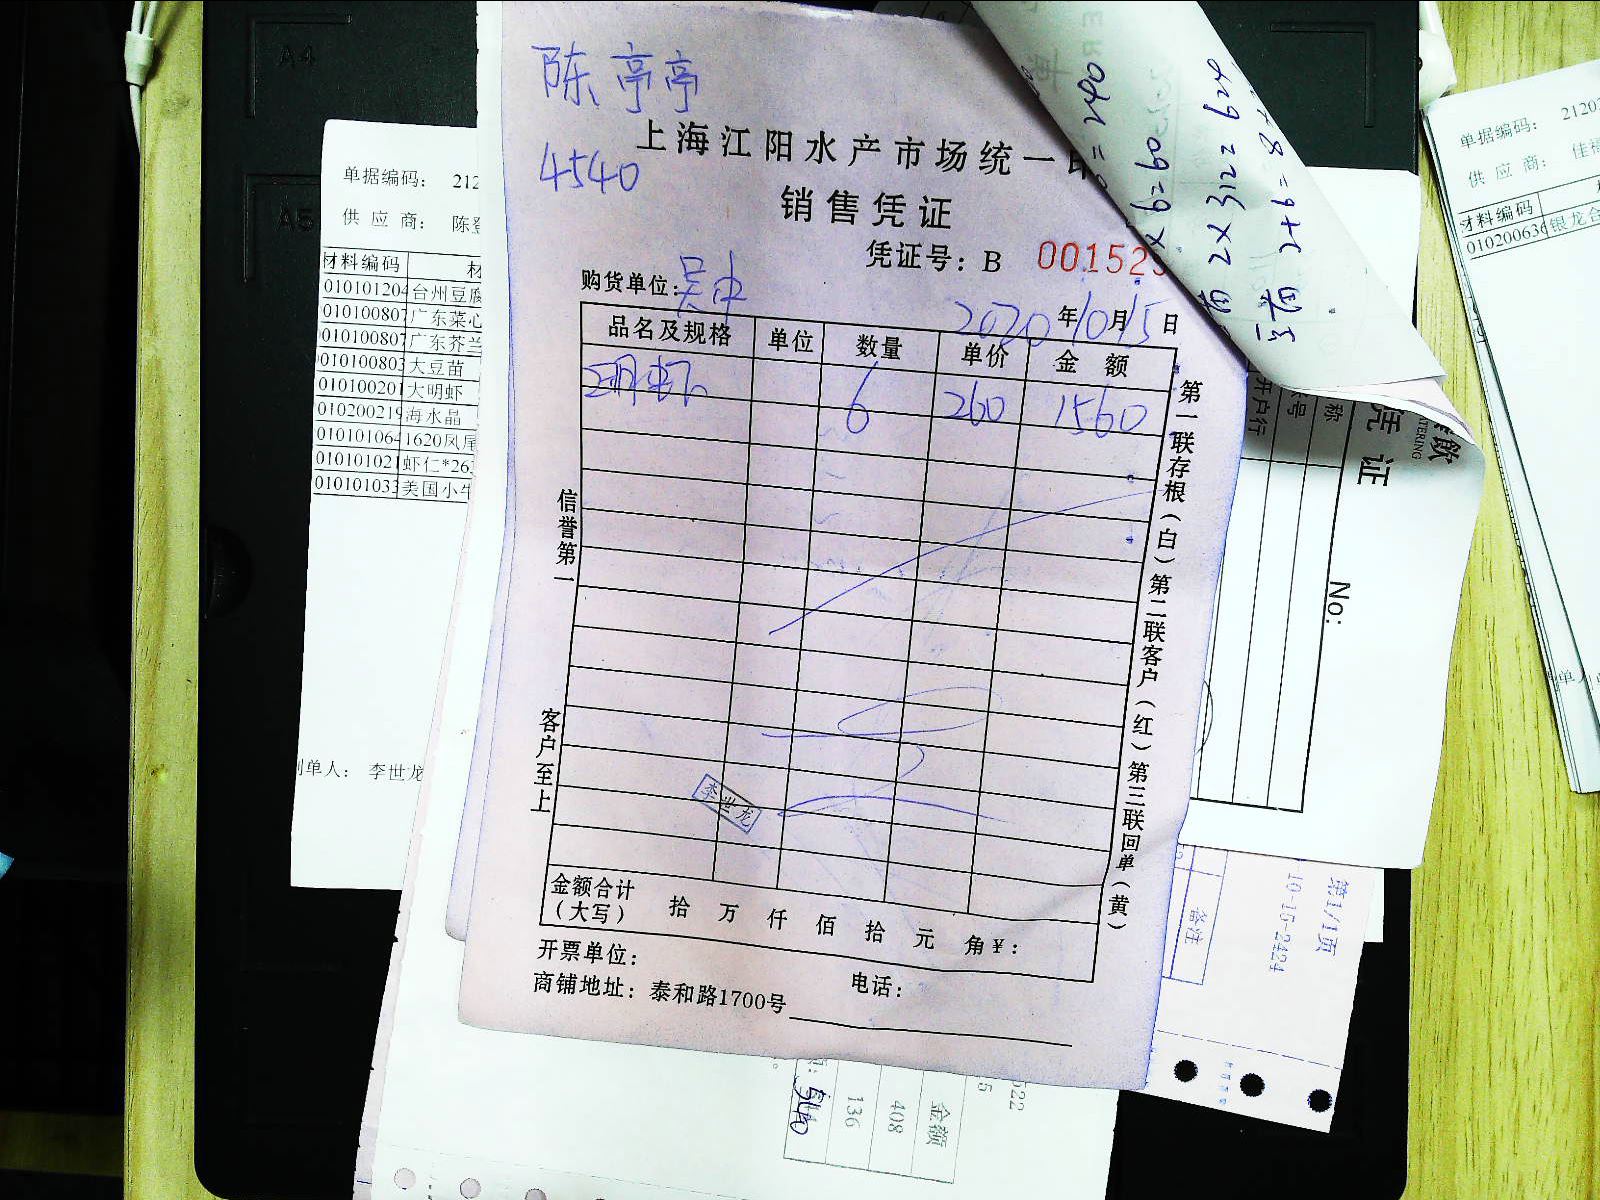 陈亭亭
4540
上海江阳水产市场统一
销售凭证
凭证号：B 001525
购货单位：吴中
2020年10月15日
品名及规格 单位 数量 单价 金额
明虾 6 260 1560
第一联存根（白）第二联客户（红）第三联回单（黄）
信誉第一
客户至上
李世龙
金额合计
（大写） 拾 万 仟 佰 拾 元 角￥：
开票单位：
商铺地址：泰和路1700号 电话：
单据编码： 212
供应商： 陈
材料编码 材
010101204 台州豆腐
010100807 广东菜心
010100807 广东芥兰
010100803 大豆苗
010100201 大明虾
010200219 海水晶
010101064 1620凤尾
010101021 虾仁*26
010101033 美国小牛
制单人： 李世龙
单据编码： 2120
供应商： 佳
材料编码
010200636 银龙
= 240
×6=90
2×312=624
2+6=8
凭证
No:
称
账号
开户行
餐饮
TERING
第1/1页
10-15-2424
备注
金额
408
136
540
522